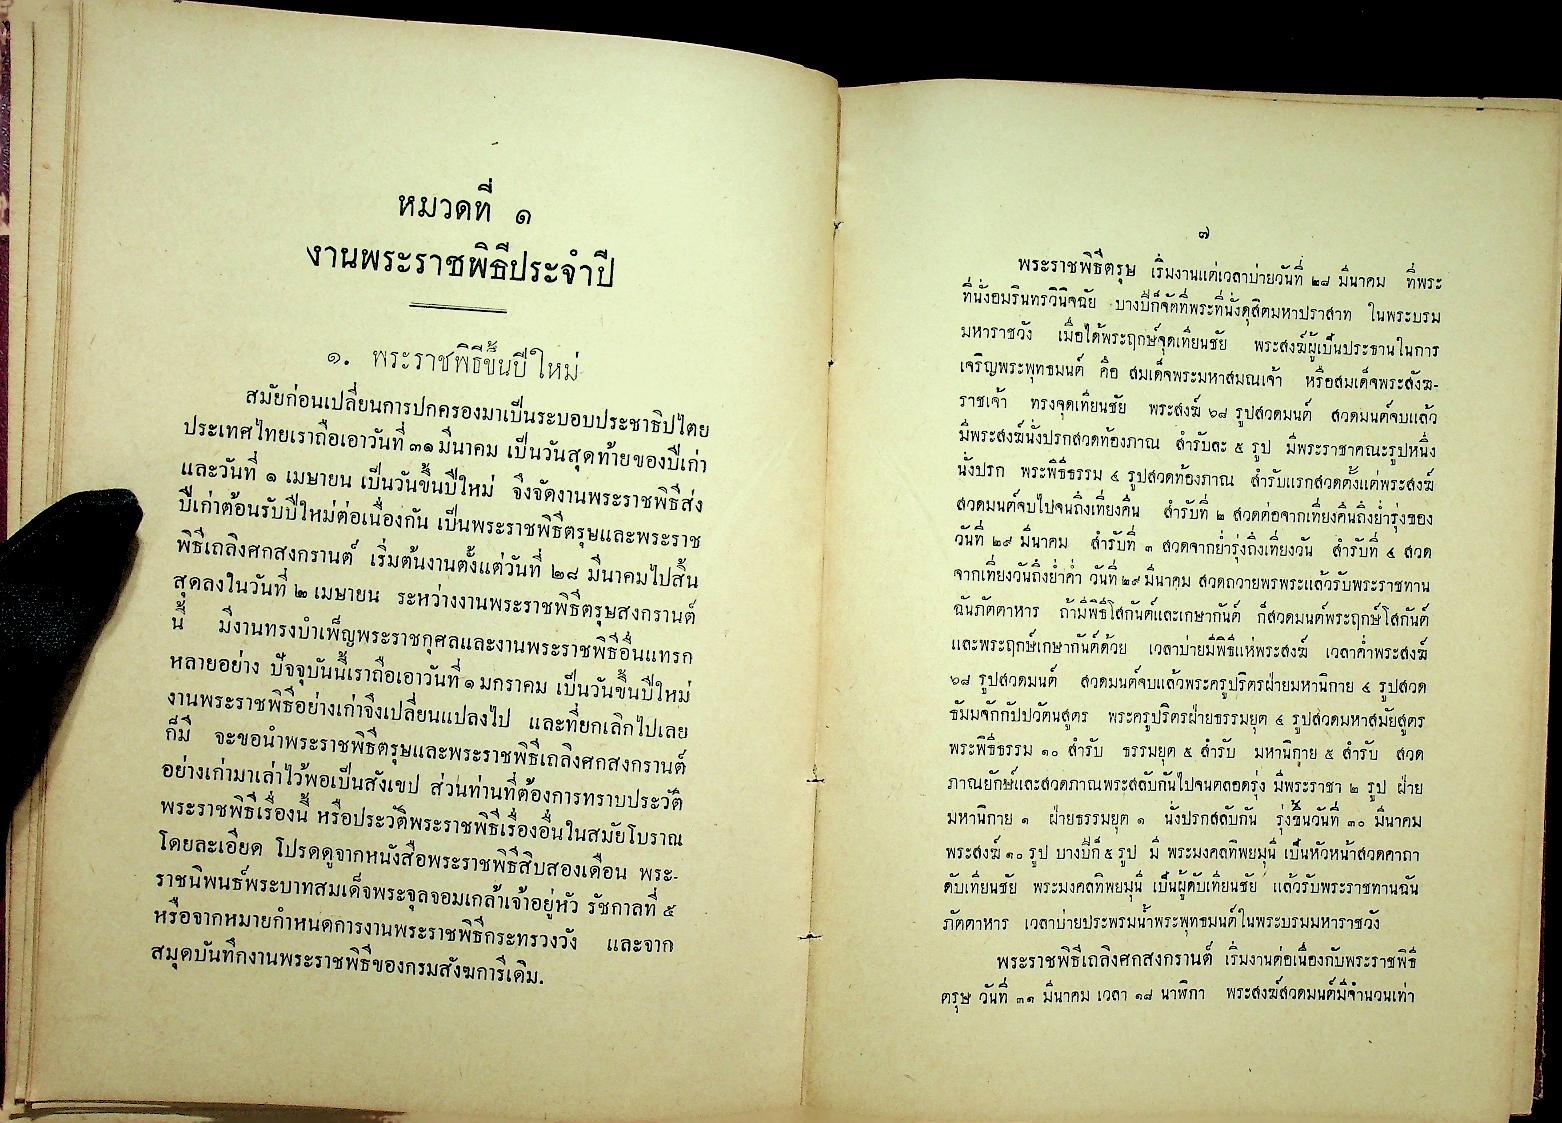 หมวดที่ ๑
งานพระราชพิธีประจำปี
๑. พระราชพิธีขึ้นปีใหม่
สมัยก่อนเปลี่ยนการปกครองมาเป็นระบอบประชาธิปไตย
ประเทศไทยเราถือเอาวันที่ ๓๑ มีนาคม เป็นวันสุดท้ายของปีเก่า
และวันที่ ๑ เมษายน เป็นวันขึ้นปีใหม่ จึงจัดงานพระราชพิธีส่ง
ปีเก่าต้อนรับปีใหม่ต่อเนื่องกัน เป็นพระราชพิธีตรุษและพระราช
พิธีเถลิงศกสงกรานต์ เริ่มต้นงานตั้งแต่วันที่ ๒๘ มีนาคมไปสิ้น
สุดลงในวันที่ ๒ เมษายน ระหว่างงานพระราชพิธีตรุษสงกรานต์
นี้ มีงานทรงบำเพ็ญพระราชกุศลและงานพระราชพิธีอื่นแทรก
หลายอย่าง ปัจจุบันนี้เราถือเอาวันที่ ๑ มกราคม เป็นวันขึ้นปีใหม่
งานพระราชพิธีอย่างเก่าจึงเปลี่ยนแปลงไป และที่ยกเลิกไปเลย
ก็มี จะขอนำพระราชพิธีตรุษและพระราชพิธีเถลิงศกสงกรานต์
อย่างเก่ามาเล่าไว้พอเป็นสังเขป ส่วนท่านที่ต้องการทราบประวัติ
พระราชพิธีเรื่องนี้ หรือประวัติพระราชพิธีเรื่องอื่นในสมัยโบราณ
โดยละเอียด โปรดดูจากหนังสือพระราชพิธีสิบสองเดือน พระ-
ราชนิพนธ์พระบาทสมเด็จพระจุลจอมเกล้าเจ้าอยู่หัว รัชกาลที่ ๕
หรือจากหมายกำหนดการงานพระราชพิธีกระทรวงวัง และจาก
สมุดบันทึกงานพระราชพิธีของกรมสังฆการีเดิม.
๗
พระราชพิธีตรุษ เริ่มงานแต่เวลาบ่ายวันที่ ๒๘ มีนาคม ที่พระ
ที่นั่งอมรินทรวินิจฉัย บางปีก็จัดที่พระที่นั่งดุสิตมหาปราสาท ในพระบรม
มหาราชวัง เมื่อได้พระฤกษ์จุดเทียนชัย พระสงฆ์ผู้เป็นประธานในการ
เจริญพระพุทธมนต์ คือ สมเด็จพระมหาสมณเจ้า หรือสมเด็จพระสังฆ-
ราชเจ้า ทรงจุดเทียนชัย พระสงฆ์ ๖๘ รูปสวดมนต์ สวดมนต์จบแล้ว
มีพระสงฆ์นั่งปรกสวดท้องภาณ สำรับละ ๕ รูป มีพระราชาคณะรูปหนึ่ง
นั่งปรก พระพิธีธรรม ๔ รูปสวดท้องภาณ สำรับแรกสวดตั้งแต่พระสงฆ์
สวดมนต์จบไปจนถึงเที่ยงคืน สำรับที่ ๒ สวดต่อจากเที่ยงคืนถึงย่ำรุ่งของ
วันที่ ๒๙ มีนาคม สำรับที่ ๓ สวดจากย่ำรุ่งถึงเที่ยงวัน สำรับที่ ๔ สวด
จากเที่ยงวันถึงย่ำค่ำ วันที่ ๒๙ มีนาคม สวดถวายพรพระแล้วรับพระราชทาน
ฉันภัตตาหาร ถ้ามีพิธีโสกันต์และเกษากันต์ ก็สวดมนต์พระฤกษ์โสกันต์
และพระฤกษ์เกษากันต์ด้วย เวลาบ่ายมีพิธีแห่พระสงฆ์ เวลาค่ำพระสงฆ์
๖๘ รูปสวดมนต์ สวดมนต์จบแล้วพระครูปริตรฝ่ายมหานิกาย ๔ รูปสวด
ธัมมจักกัปปวัตนสูตร พระครูปริตรฝ่ายธรรมยุต ๔ รูปสวดมหาสมัยสูตร
พระพิธีธรรม ๑๐ สำรับ ธรรมยุต ๕ สำรับ มหานิกาย ๕ สำรับ สวด
ภาณยักษ์และสวดภาณพระสลับกันไปจนตลอดรุ่ง มีพระราชา ๒ รูป ฝ่าย
มหานิกาย ๑ ฝ่ายธรรมยุต ๑ นั่งปรกสลับกัน รุ่งขึ้นวันที่ ๓๐ มีนาคม
พระสงฆ์ ๑๐ รูป บางปีก็ ๕ รูป มี พระมงคลทิพยมุนี เป็นหัวหน้าสวดคาถา
ดับเทียนชัย พระมงคลทิพยมุนี เป็นผู้ดับเทียนชัย แล้วรับพระราชทานฉัน
ภัตตาหาร เวลาบ่ายประพรมน้ำพระพุทธมนต์ในพระบรมมหาราชวัง
พระราชพิธีเถลิงศกสงกรานต์ เริ่มงานต่อเนื่องกับพระราชพิธี
ตรุษ วันที่ ๓๑ มีนาคม เวลา ๑๘ นาฬิกา พระสงฆ์สวดมนต์มีจำนวนเท่า